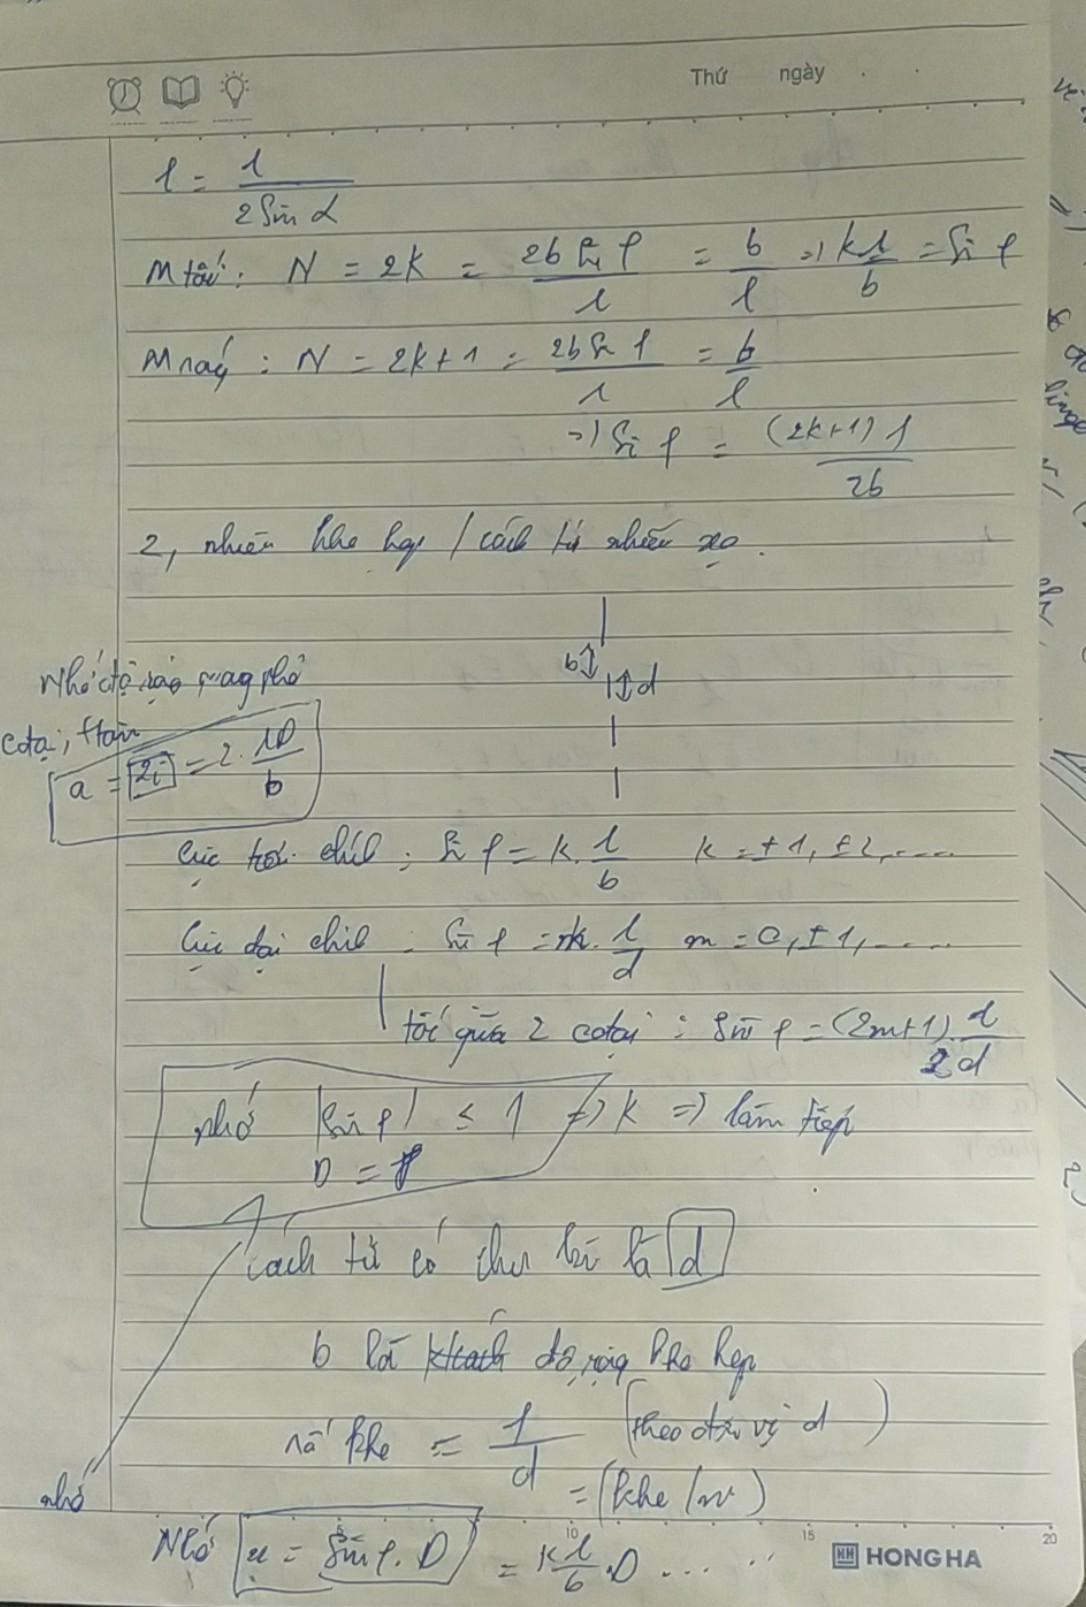 Thứ ngày
l = λ / 2 Sin α
M tối: N = 2k = 2b Sin φ / λ = b / l => kλ / b = Sin φ
M sáng: N = 2k + 1 = 2b Sin φ / λ = b / l
=> Sin φ = (2k+1) λ / 2b
2, nhiều khe hẹp / cách tử nhiễu xạ.
b d
Nhớ độ rộng quang phổ
cđại, tâm
a = 2i = 2. λD / b
Cực tiểu chính: Sin φ = k. λ / b k = ±1, ±2, ....
Cực đại chính: Sin φ = m. λ / d m = 0, ±1, .....
tối giữa 2 cđại: Sin φ = (2m+1) λ / 2d
nhớ |Sin φ| ≤ 1 => k => làm tiếp
D = f
Cách tử có chu kì là d
b là độ rộng khe hẹp
số khe = 1 / d (theo đơn vị d)
= (khe / m)
nhớ
Nhớ x = Sin φ. D = k λ / b .D ....
5 10 15 20
HONG HA